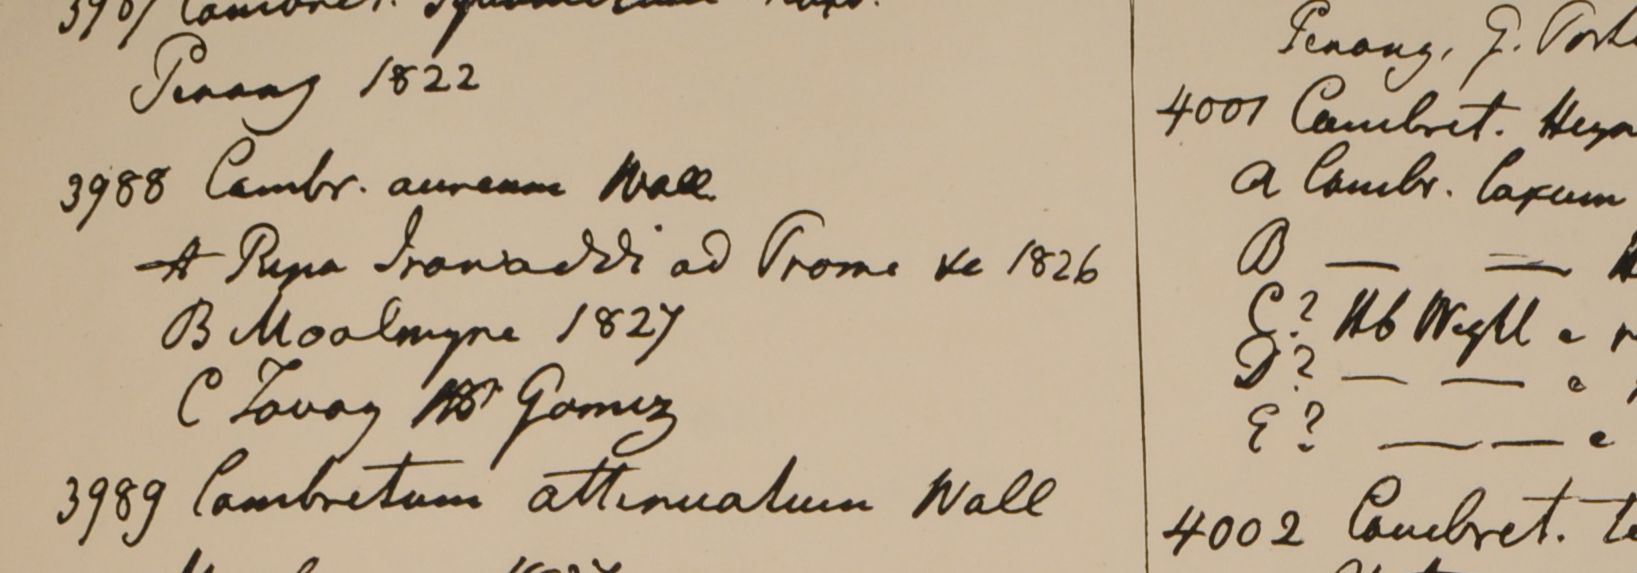 Penang 1822
3988 Combr. aureum Wall.
A Ripa Irawaddi ad Prome &c 1826
B Moalmyne 1827
C Tavoy Gomez
3989 Combretum attenuatum Wall
Penang, G. Port
4001 Combret. Heyn
A Combr. laxum
B — —
C? Hb Wight e
D? — — e
E? — — e
4002 Combret.